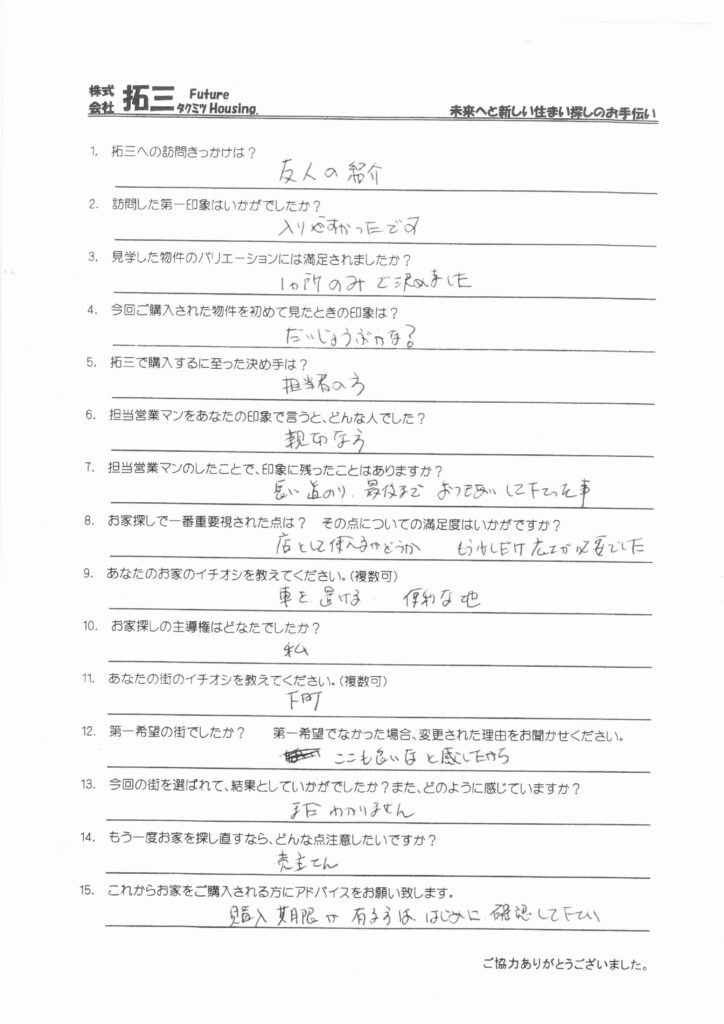 株式会社 拓三 Future タクミツ Housing.
未来へと新しい住まい探しのお手伝い
1. 拓三への訪問きっかけは？
友人の紹介
2. 訪問した第一印象はいかがでしたか？
入りやすかったです
3. 見学した物件のバリエーションには満足されましたか？
1ヵ所のみで決めました
4. 今回ご購入された物件を初めて見たときの印象は？
だいじょうぶかな？
5. 拓三で購入するに至った決め手は？
担当者の方
6. 担当営業マンをあなたの印象で言うと、どんな人でした？
親切な方
7. 担当営業マンのしたことで、印象に残ったことはありますか？
長い道のり、最後まで おつき合いして下さった事
8. お家探しで一番重要視された点は？ その点についての満足度はいかがですか？
店として使へるかどうか もう少しだけ広さが必要でした
9. あなたのお家のイチオシを教えてください。（複数可）
車を置ける 便利な地
10. お家探しの主導権はどなたでしたか？
私
11. あなたの街のイチオシを教えてください。（複数可）
下町
12. 第一希望の街でしたか？ 第一希望でなかった場合、変更された理由をお聞かせください。
ここも良いなと感じたから
13. 今回の街を選ばれて、結果としていかがでしたか？また、どのように感じていますか？
まだわかりません
14. もう一度お家を探し直すなら、どんな点注意したいですか？
売主さん
15. これからお家をご購入される方にアドバイスをお願い致します。
購入期限が有る方は はじめに 確認して下さい
ご協力ありがとうございました。